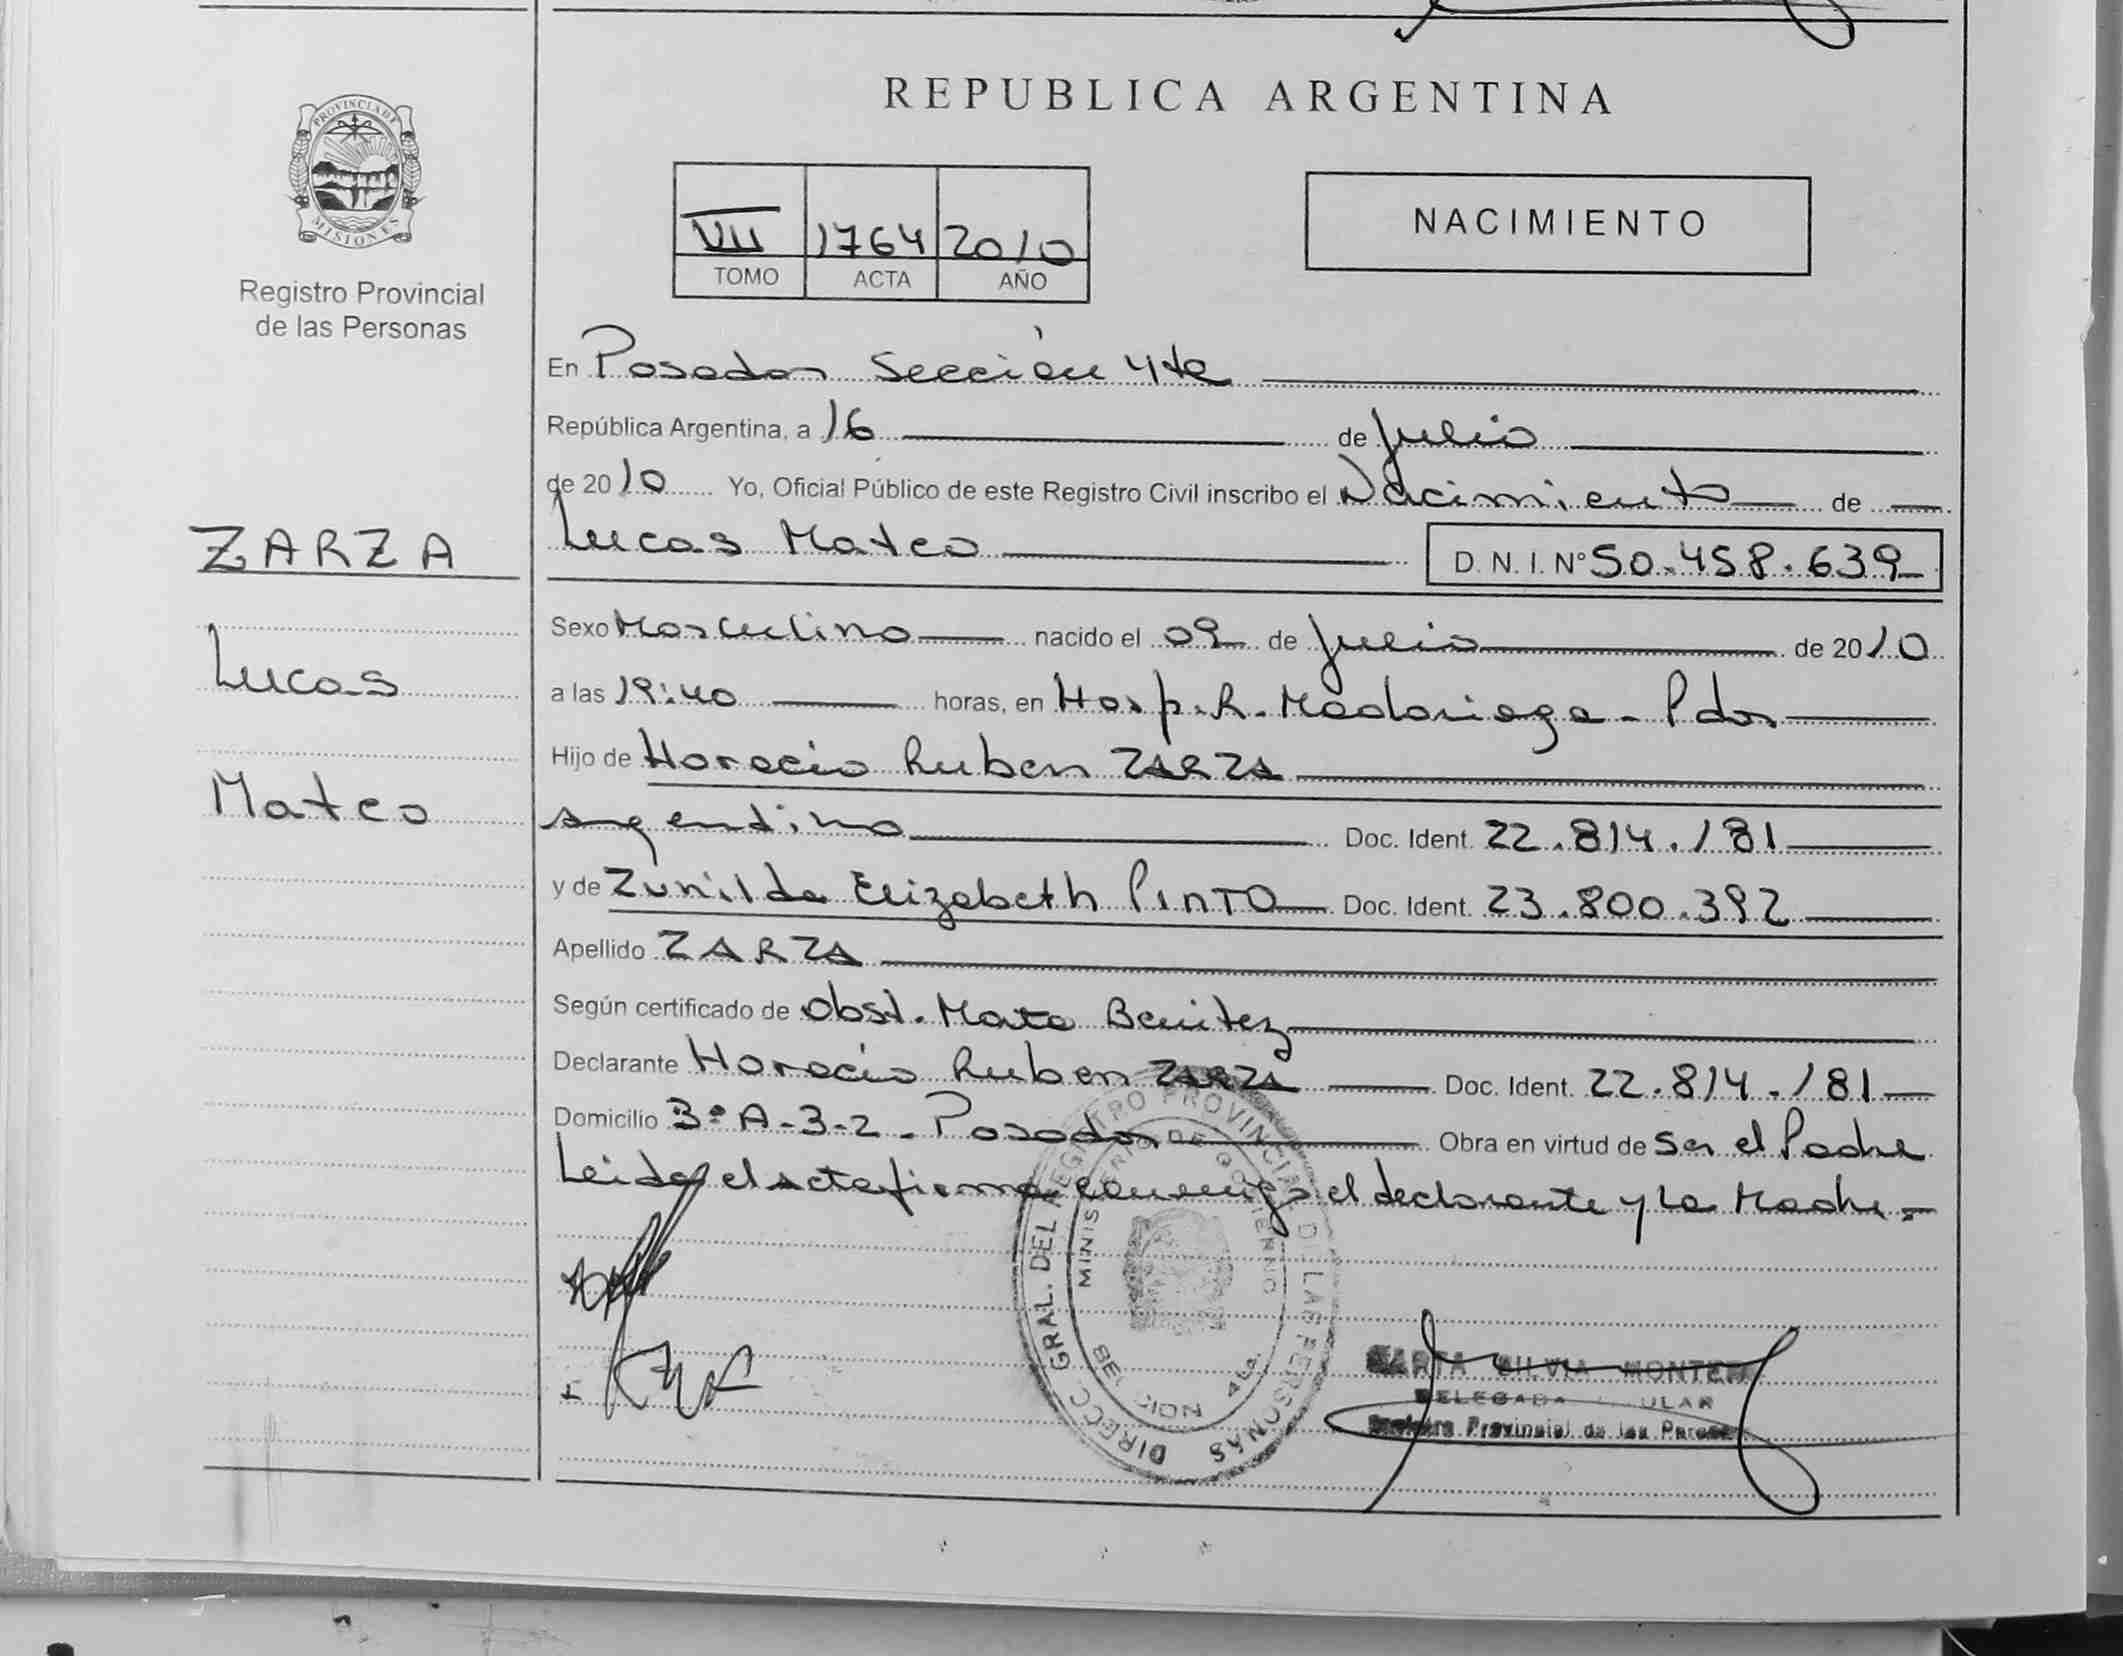 REPUBLICA ARGENTINA
PROVINCIA DE
MISIONES
Registro Provincial
de las Personas
VII 1764 2010
TOMO ACTA AÑO
NACIMIENTO
En Posadas Sección 4ta
República Argentina, a 16 de Julio
de 2010 Yo, Oficial Público de este Registro Civil inscribo el Nacimiento de
Lucas Mateo D. N. I. Nº 50.458.639
ZARZA
Lucas
Mateo
Sexo Masculino nacido el 09 de Julio de 2010
a las 19:40 horas, en Hosp. R. Madariaga - Pdas
Hijo de Horacio Ruben ZARZA
argentino Doc. Ident. 22.814.181
y de Zunilda Elizabeth PINTO Doc. Ident. 23.800.392
Apellido ZARZA
Según certificado de Obst. Benitez
Declarante Horacio Ruben ZARZA Doc. Ident. 22.814.181
Domicilio 3º A-3-2 - Posadas Obra en virtud de Ser el Padre
Leida el acta firma conmigo el declarante y la Madre.=
DIRECC. GRAL. DEL REGISTRO PROVINCIAL DE LAS PERSONAS
MINISTERIO DE GOBIERNO
SECCION 4ta.
SILVIA
DELEGADA TITULAR
Registro Provincial de las Personas